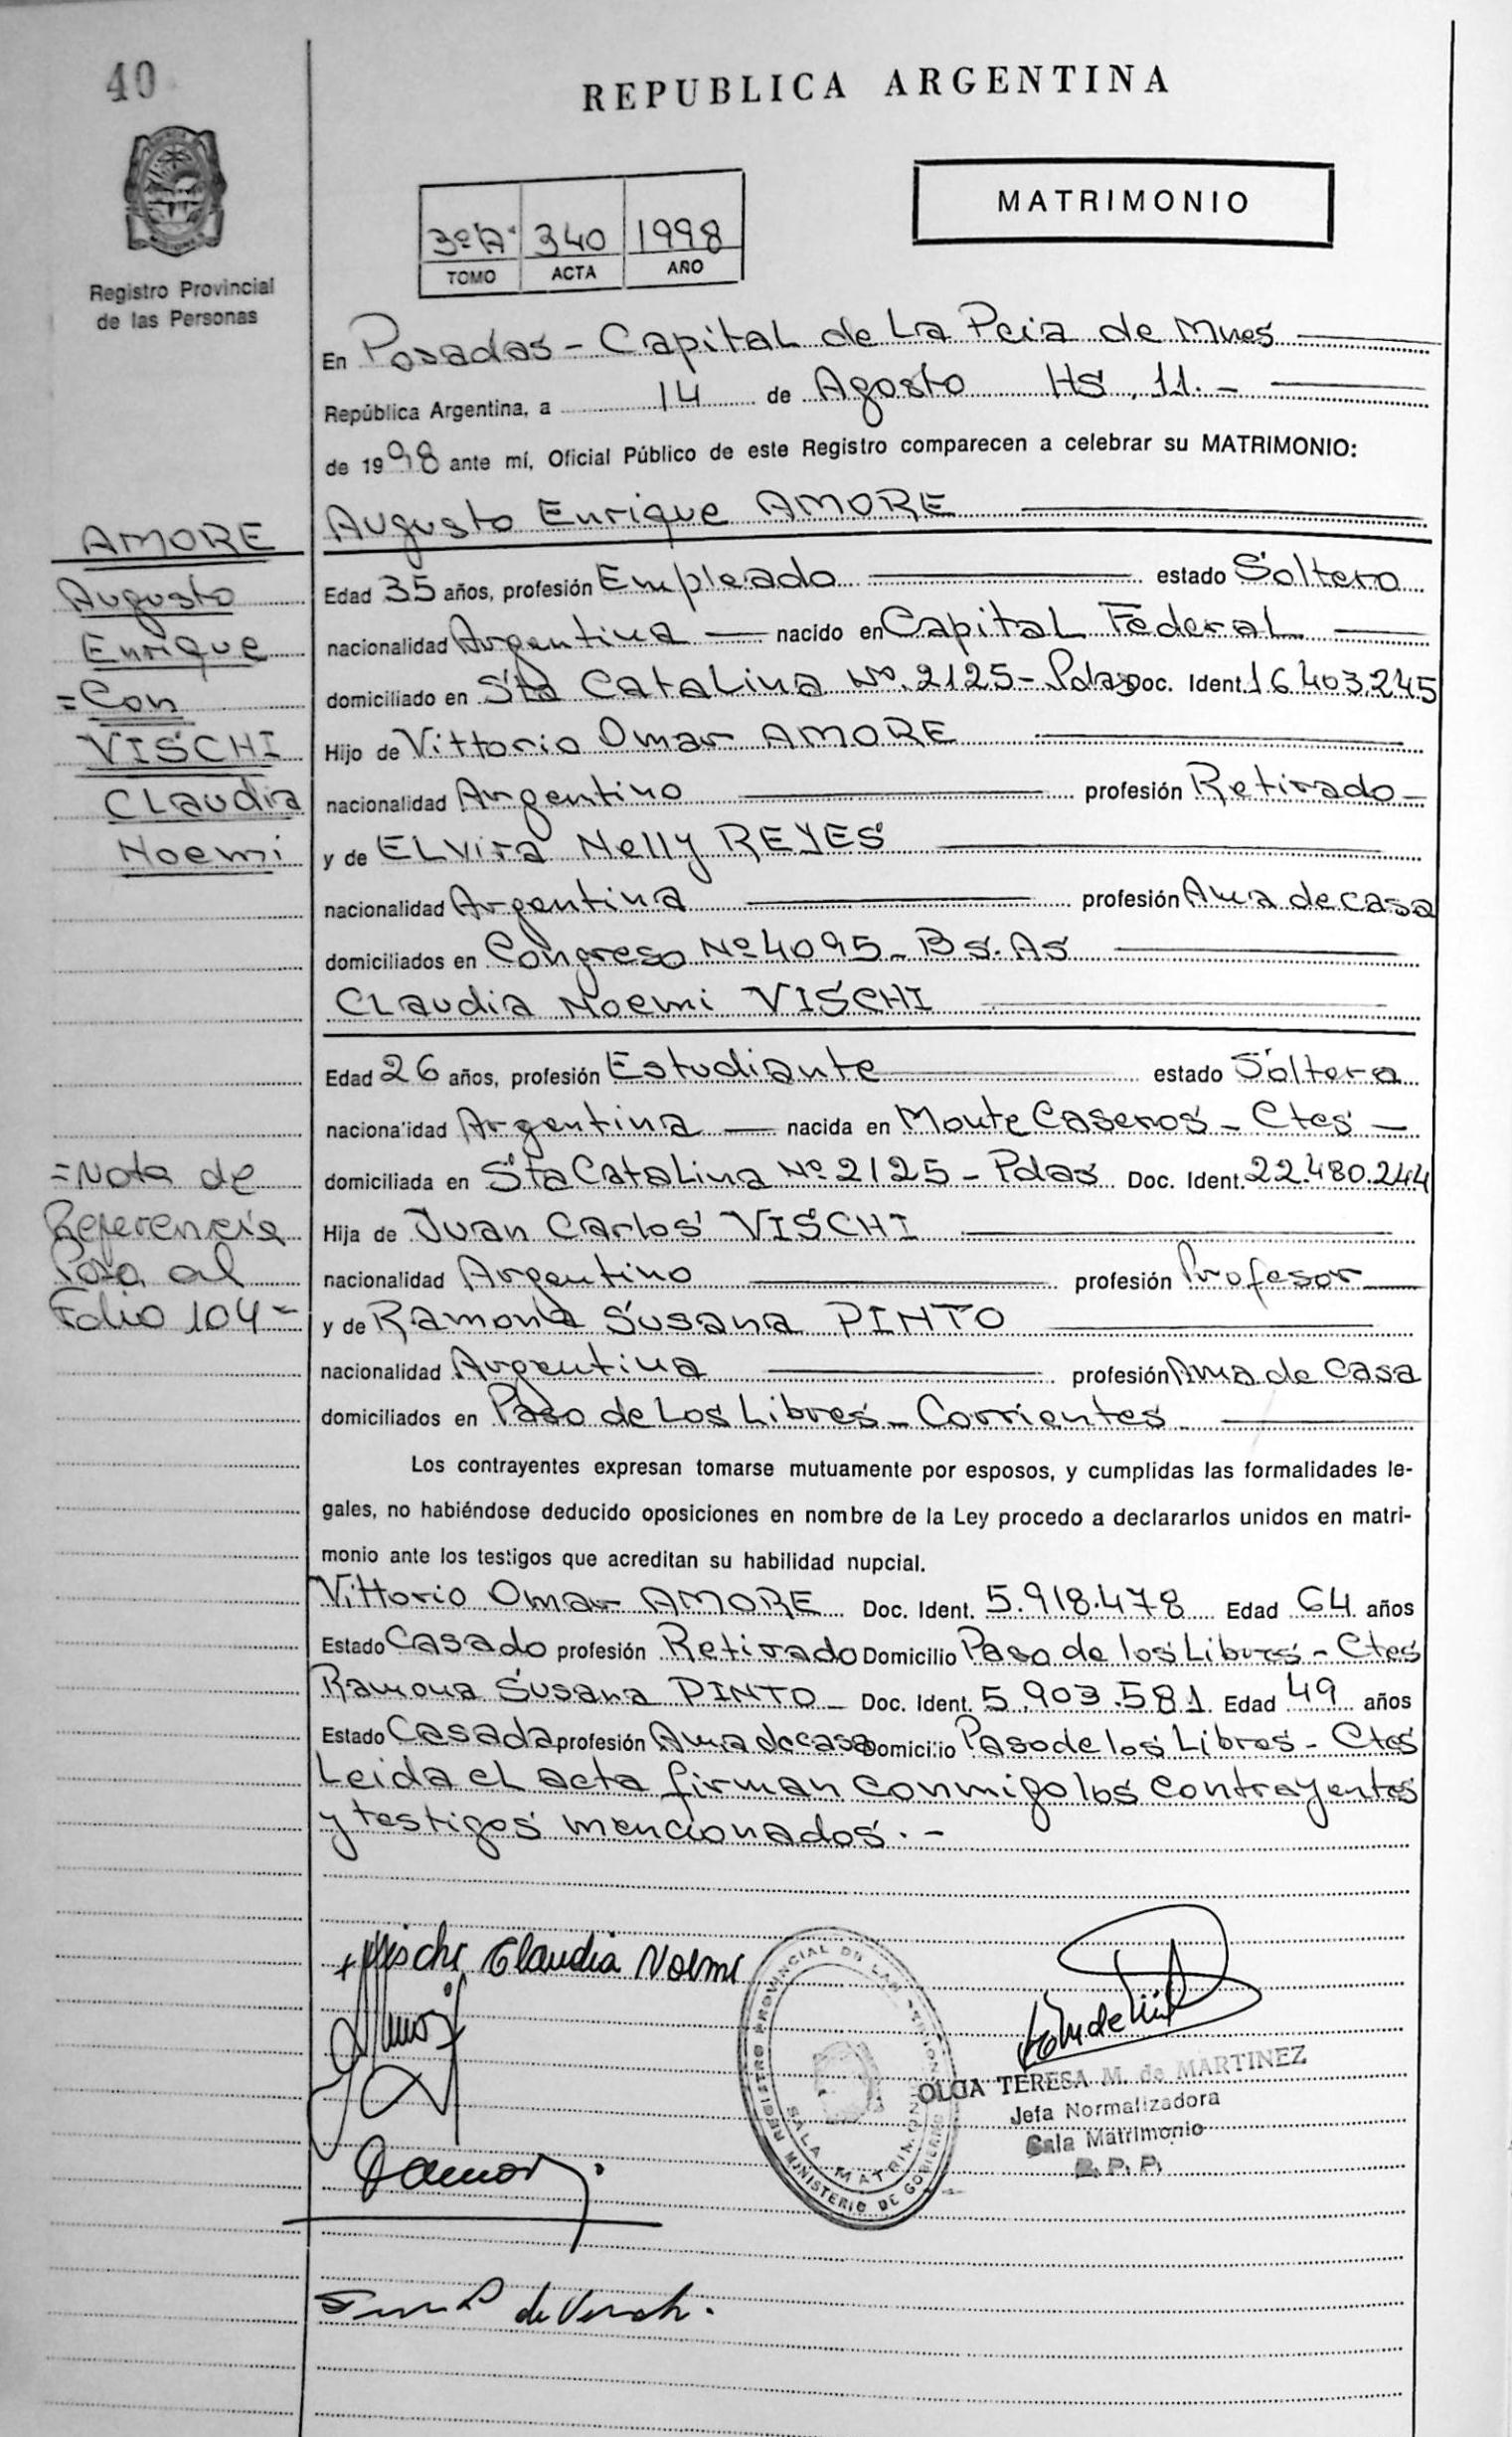 40
REPUBLICA ARGENTINA
MATRIMONIO
3º"A" 340 1998
TOMO ACTA AÑO
Registro Provincial
de las Personas
En Posadas - Capital de La Pcia de Mnes
República Argentina, a 14 de Agosto HS. 11.-
de 1998 ante mí, Oficial Público de este Registro comparecen a celebrar su MATRIMONIO:
Augusto Enrique AMORE
Edad 35 años, profesión Empleado estado Soltero
nacionalidad Argentina nacido en Capital Federal
domiciliado en Sta Catalina Nº 2125 - Pdas Doc. Ident. 16.403.245
Hijo de Vittorio Omar AMORE
nacionalidad Argentino profesión Retirado
y de ELvira Nelly REYES
nacionalidad Argentina profesión Ama de casa
domiciliados en Congreso Nº 4095 - Bs. As
CLaudia Noemi VISCHI
Edad 26 años, profesión Estudiante estado Soltera
nacionalidad Argentina nacida en Monte Caseros - Ctes
domiciliada en Sta Catalina Nº 2125 - Pdas Doc. Ident. 22.480.244
Hija de Juan Carlos VISCHI
nacionalidad Argentino profesión Profesor
y de Ramona Susana PINTO
nacionalidad Argentina profesión Ama de Casa
domiciliados en Paso de Los Libres - Corrientes
Los contrayentes expresan tomarse mutuamente por esposos, y cumplidas las formalidades le-
gales, no habiéndose deducido oposiciones en nombre de la Ley procedo a declararlos unidos en matri-
monio ante los testigos que acreditan su habilidad nupcial.
Vittorio Omar AMORE Doc. Ident. 5.918.478 Edad 64 años
Estado Casado profesión Retirado Domicilio Paso de los Libres - Ctes
Ramona Susana PINTO Doc. Ident. 5.903.581 Edad 49 años
Estado Casada profesión Ama de casa Domicilio Paso de los Libres - Ctes
Leida el acta firman conmigo los contrayentes
y testigos mencionados.-
AMORE
Augusto
Enrique
=Con
VISCHI
CLaudia
Noemi
=Nota de
Referencia
Pasa al
Folio 104=
Vischi Claudia Noemi
REGISTRO PROVINCIAL DE LAS PERSONAS
SALA MATRIMONIO
MINISTERIO DE GOBIERNO
OLGA TERESA M. de MARTINEZ
Jefa Normalizadora
Sala Matrimonio
R. P. P.